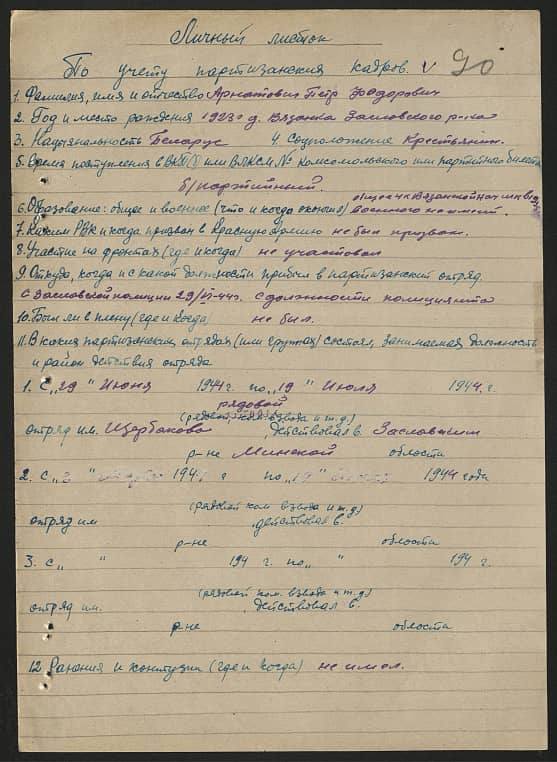 Личный листок
По учету партизанских кадров. V 90
1. Фамилия, имя и отчество Арматович Пётр Фёдорович
2. Год и место рождения 1923г. д. Вязанка Засловского р-на
3. Национальность Беларус 4. Соцположение Крестьянин.
5. Время поступления в ВКП(б) или ВЛКСМ, № комсомольского или партийного билета
б/партийный.
6. Образование: общее и военное (что и когда окончил) общее 4 кл Вязанской нач. шк
военного не имеет.
7. Каким РВК и когда призван в Красную Армию не был призван.
8. Участие на фронтах (где и когда) не участвовал
9. Откуда, когда и с какой должности прибыл в партизанский отряд.
с Засловской полиции 29/VI-44г. с должности полицията
10. Был ли в плену (где и когда) не был.
11. В каких партизанских отрядах (или группах) состоял, занимаемая должность
и район действия отряда
1. с „29" Июня 1944 г. по „19" Июля 1944 г.
рядовой
(рядовой, ком. взвода и т.д.)
отряд им. Щербакова действовал в Засловским
р-не Минской области
2. с „ " 194 г по „19" 1944 года
(рядовой ком взвода и т.д.)
отряд им действовал в.
р-не области
3. с „ " 194 г. по „ " 194 г.
(рядовой пом. взвода и т.д.)
отряд им. действовал в.
р-не области
12. Ранения и контузии (где и когда) не имел.